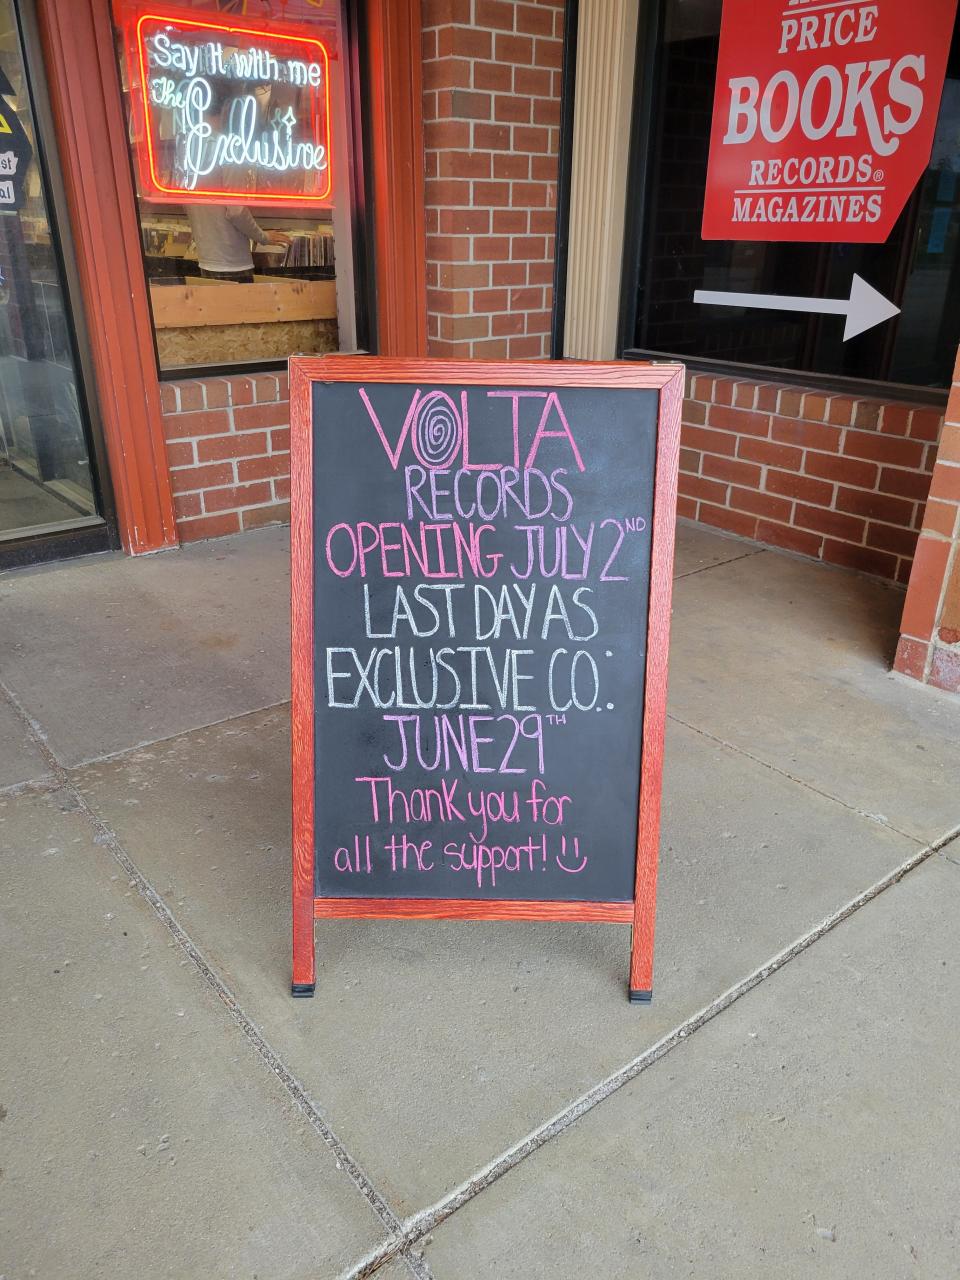 Say it with me
The Exclusive
PRICE
BOOKS
RECORDS®
MAGAZINES
VOLTA
RECORDS
OPENING JULY 2ND
LAST DAY AS
EXCLUSIVE CO.:
JUNE 29TH
Thank you for
all the support! :)